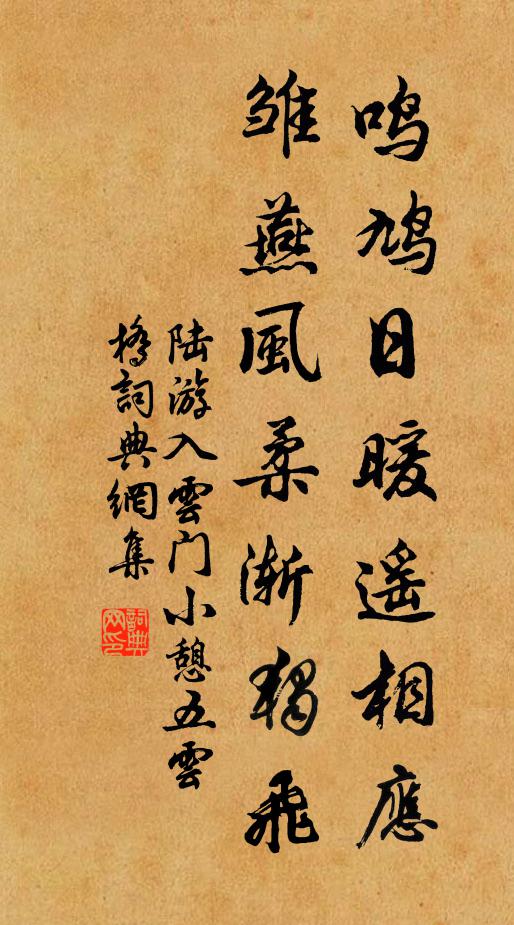 鸣鸠日暖遥相應
雏燕風柔渐独飛
陆游入雲门小憩五雲
橋詞典網集
詞典
网印